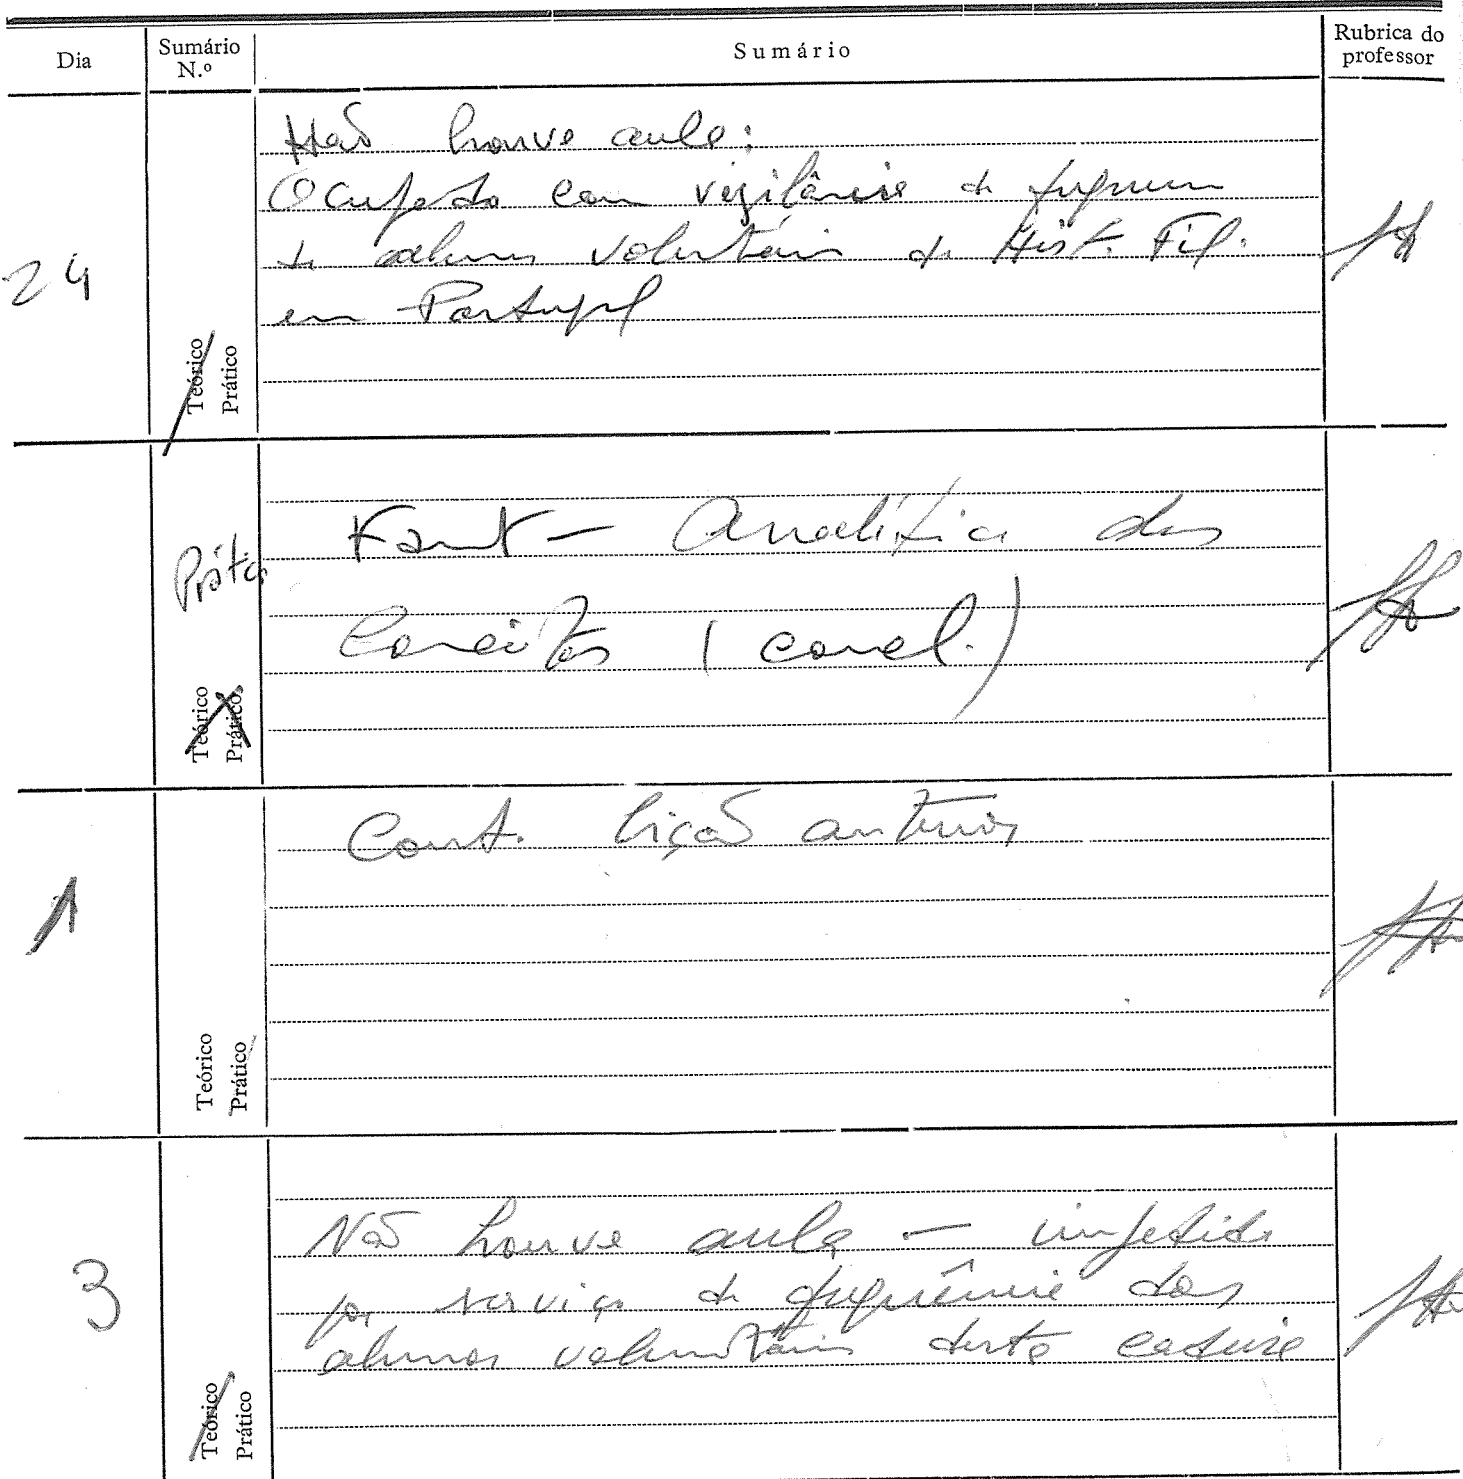 Dia
Sumário
N.º
Sumário
Rubrica do
professor
24
Não houve aula:
Ocupado com vigilância de
de alunos voluntários de Hist. Fil.
em Portugal
Teórico
Prático
Prática
Kant – Analítica dos
Conceitos (concl.)
Teórico
Prático
1
Cont. lição anterior
Teórico
Prático
3
Não houve aula – impedido
por serviço de frequência dos
alunos voluntários desta cadeira
Teórico
Prático